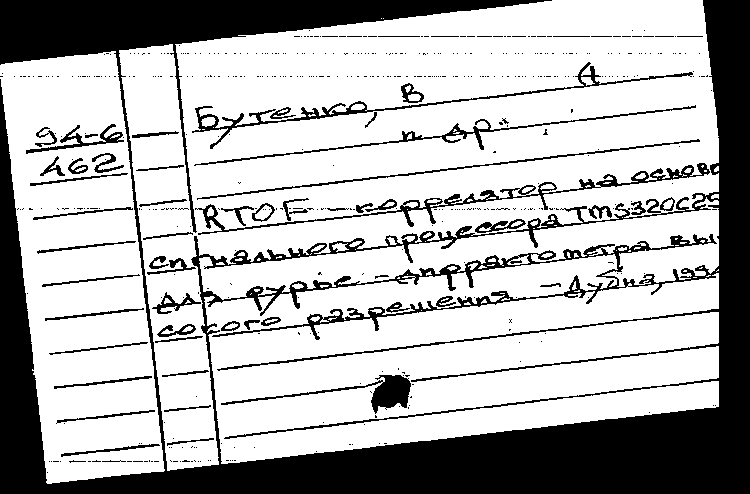 94-6
462
Бутенко, В
и др.
RTOF - коррелятор на основе
сигнального процессора TMS320C25
для фурье - дифрактометра вы-
сокого разрешения - Дубна, 1994